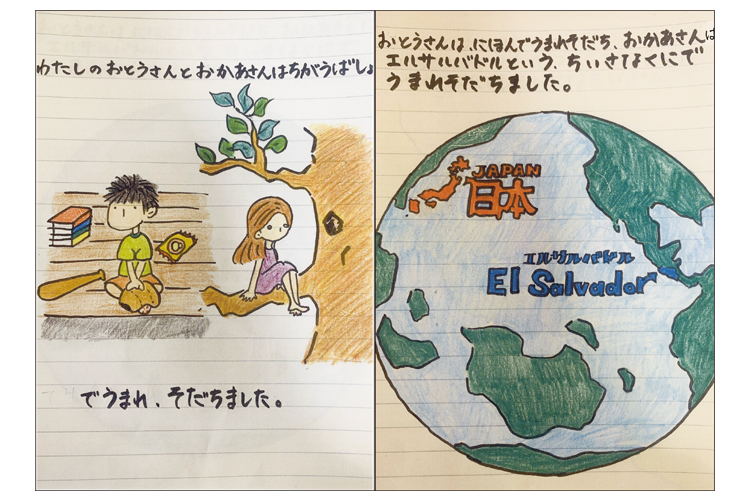 わたしのおとうさんとおかあさんはちがうばしょ
でうまれ、そだちました。
おとうさんは、にほんでうまれそだち、おかあさんは
エルサルバドルという、ちいさなくにで
うまれそだちました。
JAPAN
日本
エルサルバドル
El Salvador